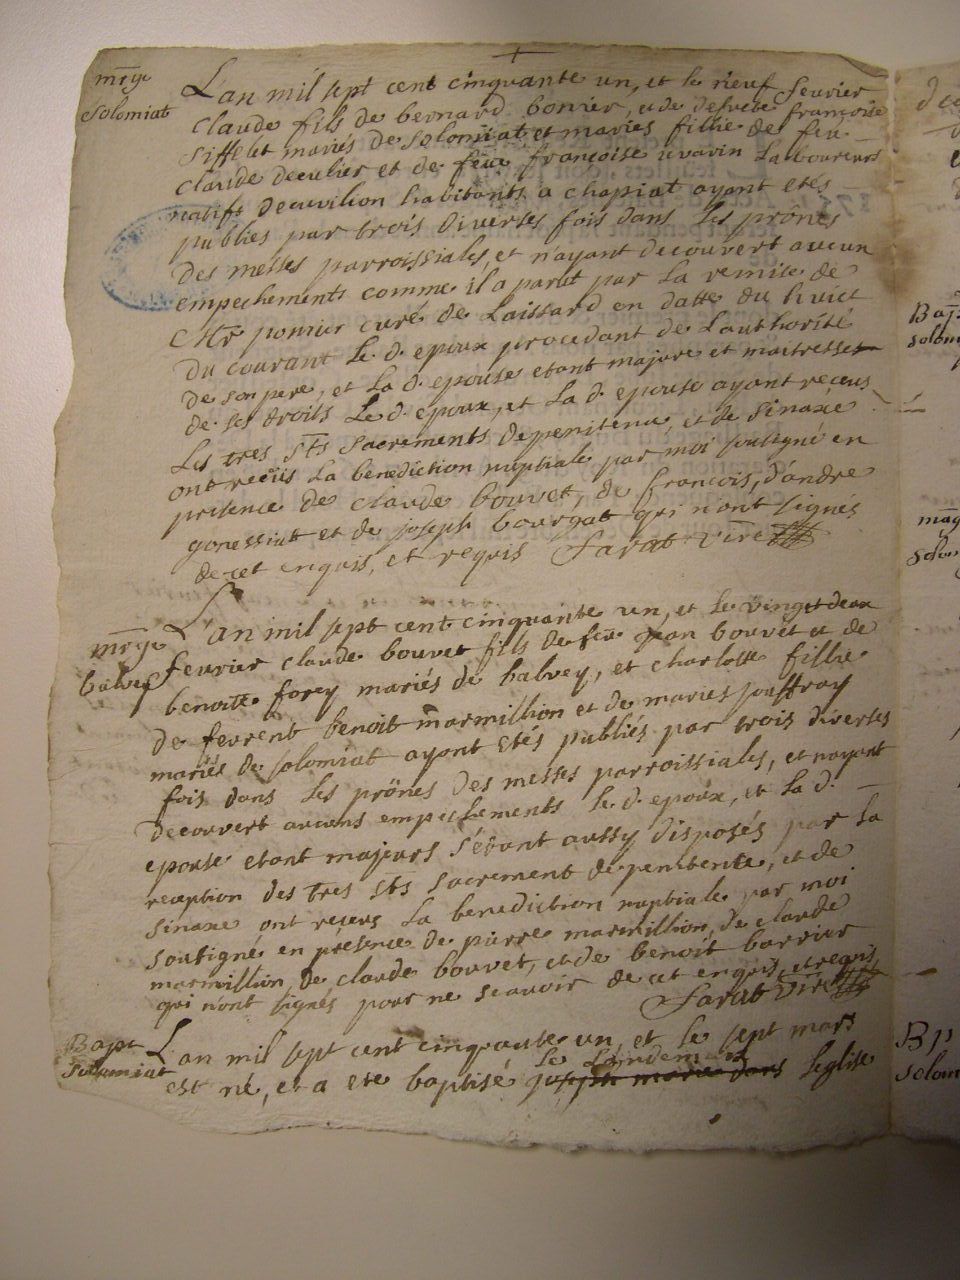 mrge
Solomiat
Lan mil sept cent cinquante un, et le neuf fevrier
claude fils de bernard bonier, et de françoise
Sifflet mariés de Solomiat et maries fillie de feu
claude et de feüe françoise Laboureurs
natifs habitants a chapiat ayant etés
publiés par trois diverses fois dans Les prônes
Des messes parroissiales, et n'ayant decouvert aucun
empechements comme il a parut par La remise de
Mr ponier curé de Laissard en datte du huict
Du courant Le d. epoux procedant de Lauthorité
De son pere, et La d. epouse etant majure et maitresse
de ses droits Le d. epoux, et La d. epouse ayant receus
Les tres sts Sacrements de penitence, et de Sinaxe
ont receüs La benediction nuptiale par moi soussigné en
presence de Claude bouvet, de françois, d'andre
gonessiat et de joseph bourgat qui n'ont signés
de cet enquis, et requis Sarat vire
mrge
balvey
Lan mil sept cent cinquante un, et le vingt deux
fevrier claude bouvet fils de feü jean bouvet et de
benoite forey mariés de balvey, et charlotte fillie
de benoit marmillion et de maries jouffray
mariés de solomiat ayant etés publiés par trois diverses
fois dans Les prônes Des messes parroissiales, et nayant
decouvert aucuns empechements le d. epoux, et La d.
epouse etant majeurs s'étant aussy disposés par La
reception des tres sts sacrement de penitente, et de
sinaxe ont receus La benediction nuptiale par moi
soussigné en présence de pierre marmillion, de claude
marmillion, de claude bouvet, et de benoit barrier
qui n'ont signés pour ne scavoir de cet enquis, et requis
Sarat vire
Bapt
Solomiat
Lan mil sept cent cinquante un, et le sept mars
le Landem
est né, et a ete baptisé joseph marie dans Leglise
Bap
solom
mag
solom
Bp
solom